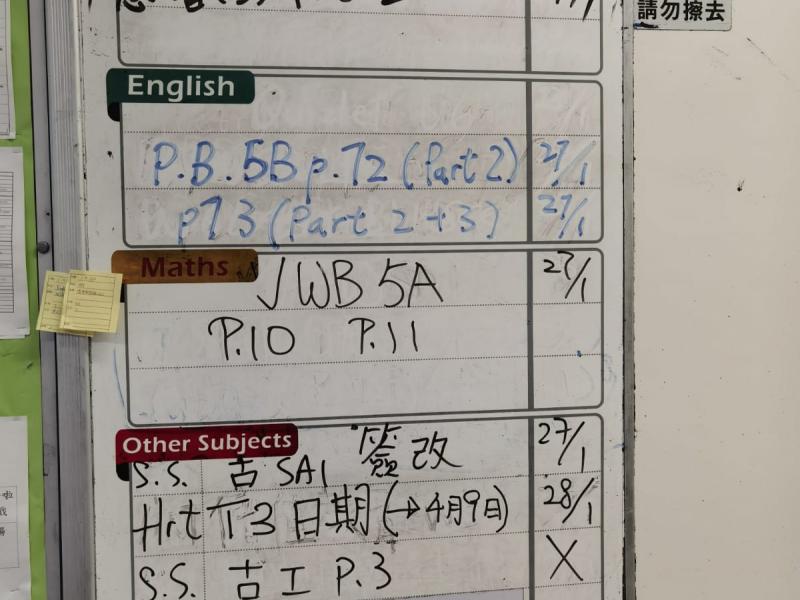 請勿擦去
English
P.B. 5B p.72 (Part 2) 27/1
p73 (Part 2+3) 27/1
Maths
JWB 5A 27/1
P.10 P.11
Other Subjects
S.S. 古 SA1 簽改 27/1
T3 日期 (→4月9日) 28/1
S.S. 古工 P.3 X